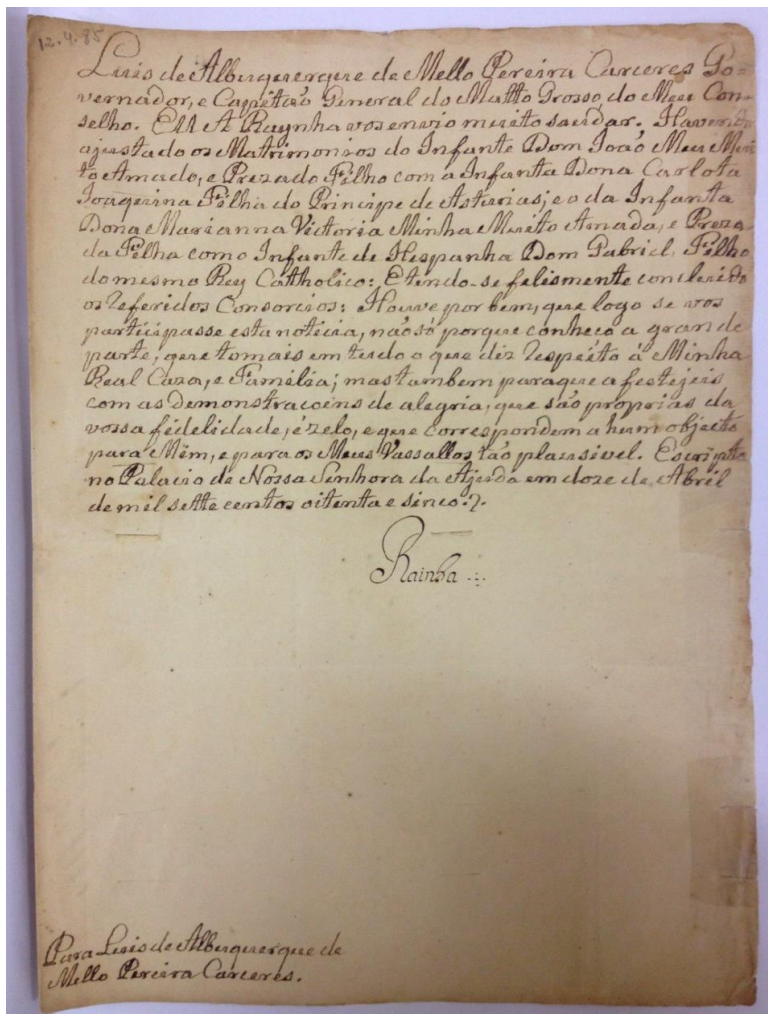 12.4.85
Luis de Albuquerque de Mello Pereira Carceres Go=
vernador, e Capitão General do Matto Grosso, do Meu Con-
selho. EU A Raynha vos envio muito saudar. Havendo
ajustado os Matrimonios do Infante Dom João Meu Mui
to Amado, e Prezado Filho com a Infanta Dona Carlota
Joaquina Filha do Principe de Asturias; e o da Infanta
Dona Marianna Victoria Minha Muito Amada, e Preza-
da Filha com o Infante de Hespanha Dom Gabriel, Filho
do mesmo Rey Catholico: E tendo-se felismente concluido
os referidos Consorcios: Houve por bem, que logo se vos
participasse esta noticia, não só porque conheço a grande
parte, que tomais em tudo o que diz respeito á Minha
Real Caza, e Familia; mas tambem para que a festejeis
com as Demonstracoens de alegria, que são proprias da
vossa fidelidade, é zelo, e que correspondem a hum objecto
para Mim, e para os Meus Vassallos tão plauzivel. Escripta
no Palacio de Nossa Senhora da Ajuda em doze de Abril
de mil sette centos oitenta e sinco.
Rainha
Para Luis de Albuquerque de
Mello Pereira Carceres.